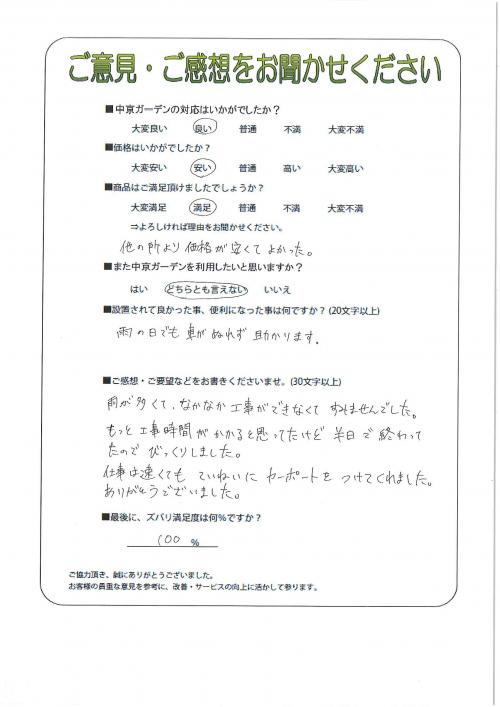 ご意見・ご感想をお聞かせください
■中京ガーデンの対応はいかがでしたか？
大変良い 良い 普通 不満 大変不満
■価格はいかがでしたか？
大変安い 安い 普通 高い 大変高い
■商品はご満足頂けましたでしょうか？
大変満足 満足 普通 不満 大変不満
⇒よろしければ理由をお聞かせください。
他の所より価格が安くてよかった。
■また中京ガーデンを利用したいと思いますか？
はい どちらとも言えない いいえ
■設置されて良かった事、便利になった事は何ですか？(20文字以上)
雨の日でも車がぬれず助かります。
■ご感想・ご要望などをお書きくださいませ。(30文字以上)
雨が多くて、なかなか工事ができなくてすみませんでした。
もっと工事時間がかかると思ってたけど半日で終わって
たのでびっくりしました。
仕事は速くてもていねいにカーポートをつけてくれました。
ありがとうございました。
■最後に、ズバリ満足度は何％ですか？
100 ％
ご協力頂き、誠にありがとうございました。
お客様の貴重な意見を参考に、改善・サービスの向上に活かして参ります。